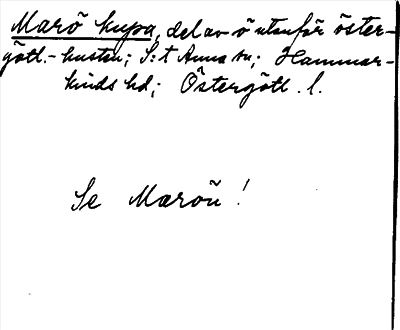 Marö kupa, del av ö utanför öster-
götl.-kusten; S:t Anna sn; Hammar-
kinds hd; Östergötl. l.
Se Marön!